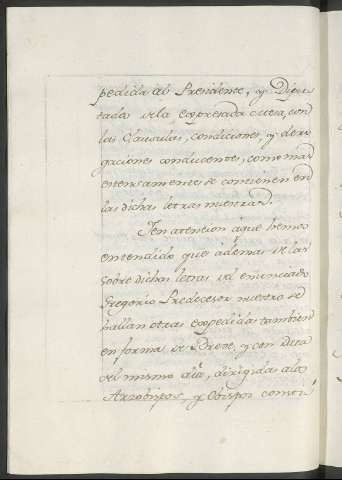 pedida al Presidente, y Dipu-
tada de la expresada Mesa, con
las Clausulas, condiciones, y dero
gaciones conducentes, como mas
extensamente se contienen en
las dichas letras nuestras.
Y en atencion à que hemos
entendido que además de las
sobre dichas letras del enunciado
Gregorio Predecesor nuestro se
hallan otras expedidas tambien
en forma de Breve, y con data
del mismo dia, dirigidas a los
Arzobispos, y Obispos comor